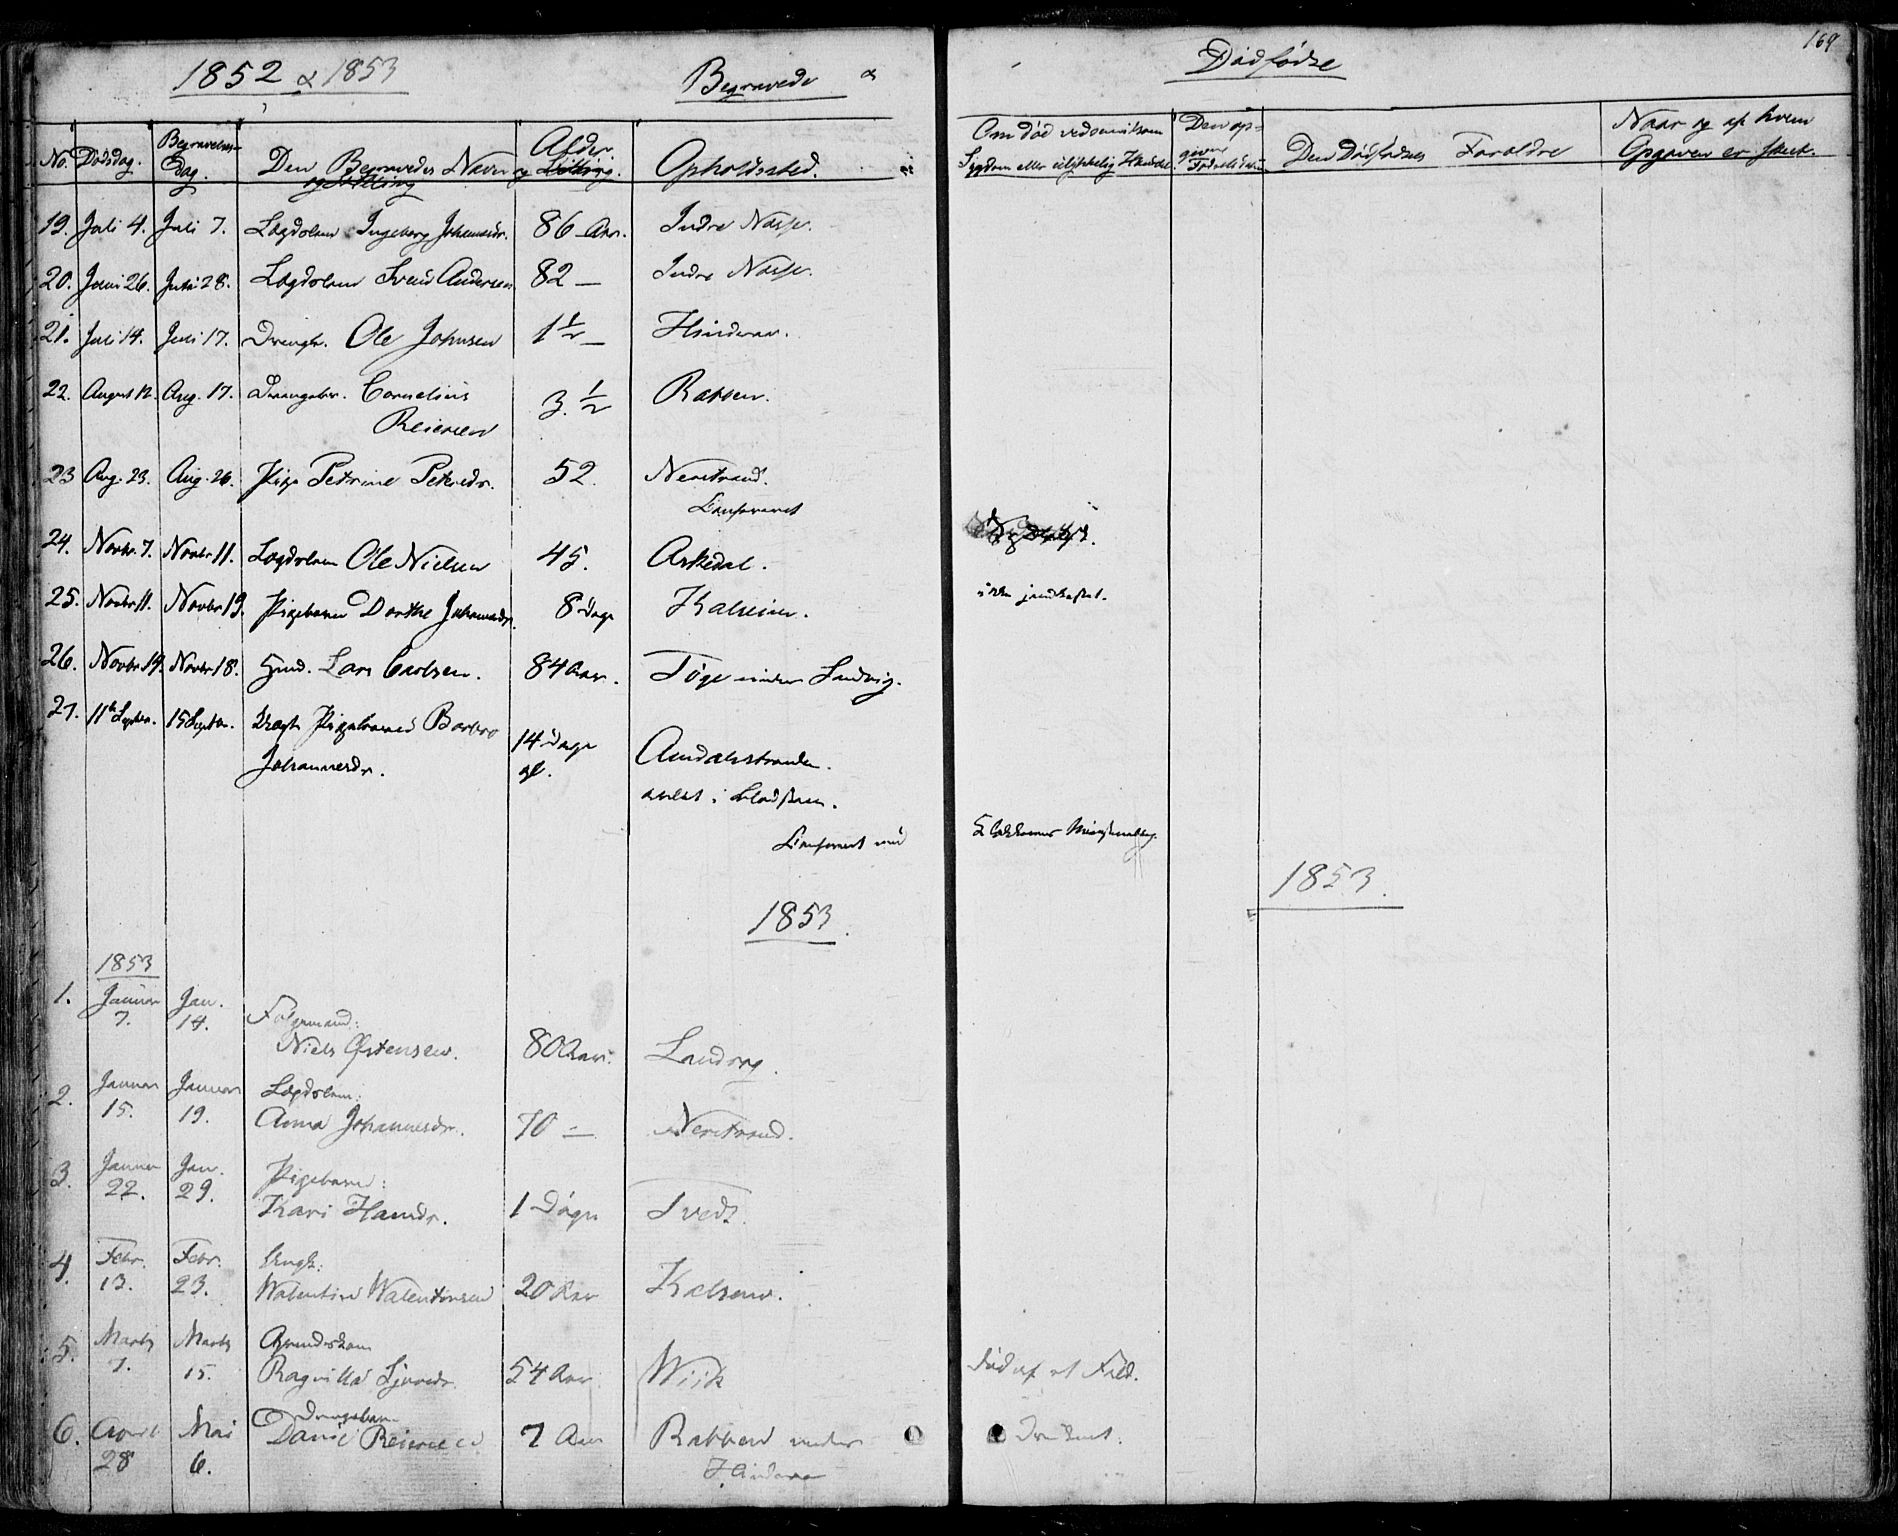 169
1852 & 1853 Begravede & Dødfødte
No. Dødsdag. Begravelses-Dag. Den Begravedes Navn og Stilling Alder Opholdssted. Om død ved Sygdom eller Den Dødfødtes Forældre Naar og af hvem Opgaven er skeet.
19. Juli 4. Juli 7. Lægdslem Ingeborg Johannesdr. 86 Aar. Indre Næsse.
20. Juni 26. Juni 28. Lægdslem Svend Andersen 82 — Indre Næsse.
21. Juli 14. Juli 17. Drengb. Ole Johnsen 1 1/2 — Hinderaa.
22. August 12. Aug. 17. Drengebr. Cornelius
Reiersen 3. 1/2 Rabben.
23 Aug. 23. Aug. 26. Pige Petrine Petersdr. 52. Nerstrand.
24. Novbr. 7. Novbr 11. Lægdslem Ole Nielsen 45. Askedal.
25. Novbr 11. Novbr 19. Pigebarn Dorthe Johannesdr. 8 Dage Kalseim. ikke
26. Novbr 14. Novbr 18. Lars Carlsen. 84 Aar. under Sandvig.
27. 11te Septbr. 15 Septbr. Pigebarn Barbro
Johannesdr. 14 Dage
gl. Amdalsstranden.
1853. 1853.
1853
1. Januar
7. Jan.
14. Følgemand:
Niels Østensen. 80 Aar.
2. Januar
15. Januar
19. Lægdslem:
Anna Johannesdr. 70 — Nerstrand.
3. Januar
22. Jan.
29. Pigebarn:
Kari Hansdr. 1 Døgn Tvedt.
4. Febr.
13. Febr.
23. Ungk:
Walentin Walentinsen 20 Aar
5. Marts
7. Marts
15. 54 Aar Wiik død af et Fald.
6. April
28 Mai
6. Drengebarn
Daniel Reiersen 7 Aar Rabben under
Hinderaa druknet.